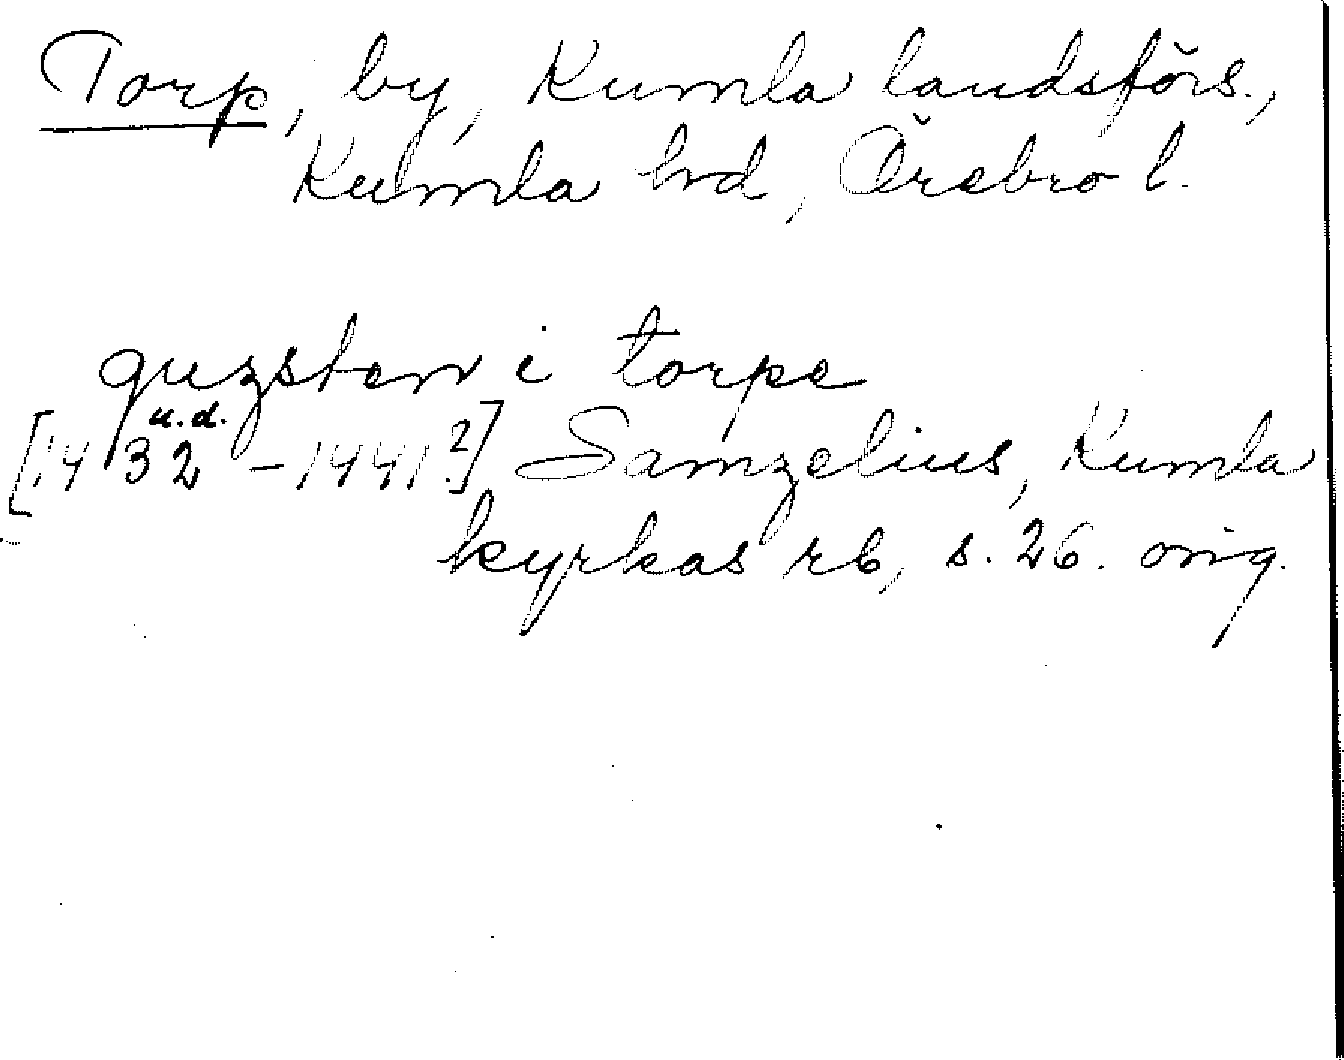 Torp, by, Kumla landsförs.,
Kumla hd, Örebro l.
guzsten i torpe
u.d.
[1432 - 1441?] Samzelius, Kumla
kyrkas rb, s. 26. orig.